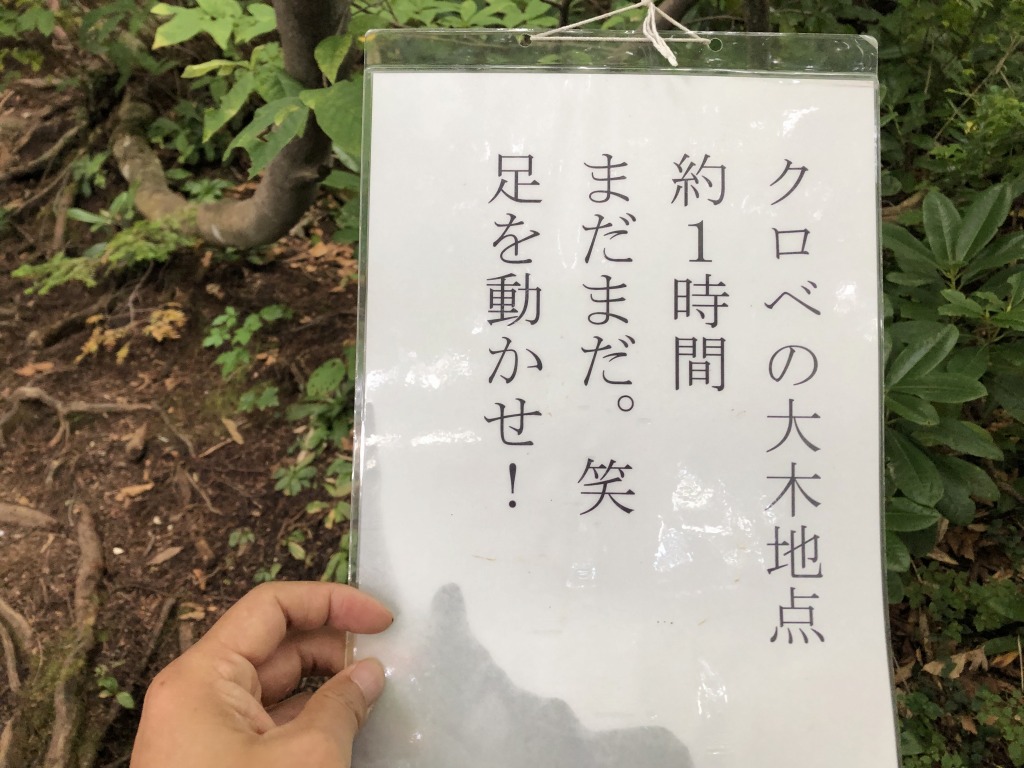 クロベの大木地点
約1時間
まだまだ。笑
足を動かせ!